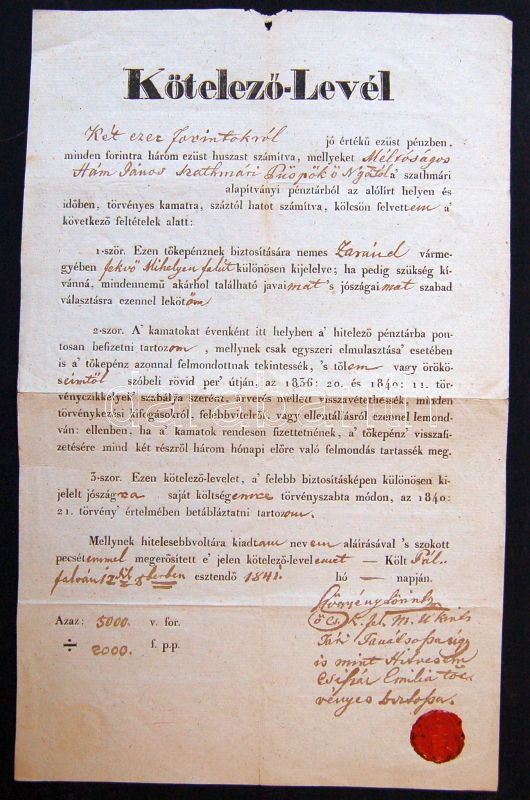 Kötelező-Levél
Két ezer forintokról jó értékű ezüst pénzben,
minden forintra három ezüst huszast számítva, mellyeket Méltóságos
Hám János Szathmári Püspök ő Ngától a' szathmári
alapítványi pénztárból az alólirt helyen és
időben, törvényes kamatra, száztól hatot számítva, kölcsön felvettem a'
következő feltételek alatt:
1-ször. Ezen tőkepénznek biztosítására nemes Zaránd várme-
gyében fekvő Mihelyen falút különösen kijelelve; ha pedig szükség kí-
vánná, mindennemű akárhol található javaimat 's jószágaimat szabad
választásra ezennel lekötöm
2-szor. A' kamatokat évenként itt helyben a' hitelező pénztárba pon-
tosan befizetni tartozom, mellynek csak egyszeri elmulasztása' esetében
is a' tőkepénz azonnal felmondottnak tekintessék, 's tőlem vagy örökö-
seimtől szóbeli rövid per' útján, az 1836: 20. és 1840: 11. tör-
vényczikkelyek szabálya szerént, árverés mellett visszavétethessék, minden
törvénykezési kifogásokról, felebbvitelről, vagy ellentállásról ezennel lemond-
ván: ellenben, ha a' kamatok rendesen fizettetnének, a' tőkepénz visszafi-
zetésére mind két részről három hónapi előre való felmondás tartassék meg.
3-szor. Ezen kötelező-levelet, a' felebb biztosításképen különösen ki-
jelelt jószágra saját költségemre törvényszabta módon, az 1840:
21. törvény' értelmében betábláztatni tartozom.
Mellynek hitelesebbvoltára kiadtam nevem aláírásával 's szokott
pecsétemmel megerősített e' jelen kötelező-levelemet — Költ Pál-
falván 12 8berben esztendő 1841. hó — napján.
Azaz: 5000. v. for.
÷ 2000. f. p.p.
K. M. U
Tári Tanátsossa
is mint Hitvestem
Csiszár Emilia tör-
vényes